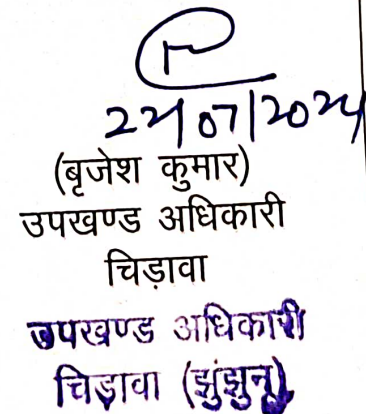 22/07/2024
(बृजेश कुमार)
उपखण्ड अधिकारी
चिड़ावा
उपखण्ड अधिकारी
चिड़ावा (झुंझुनू)